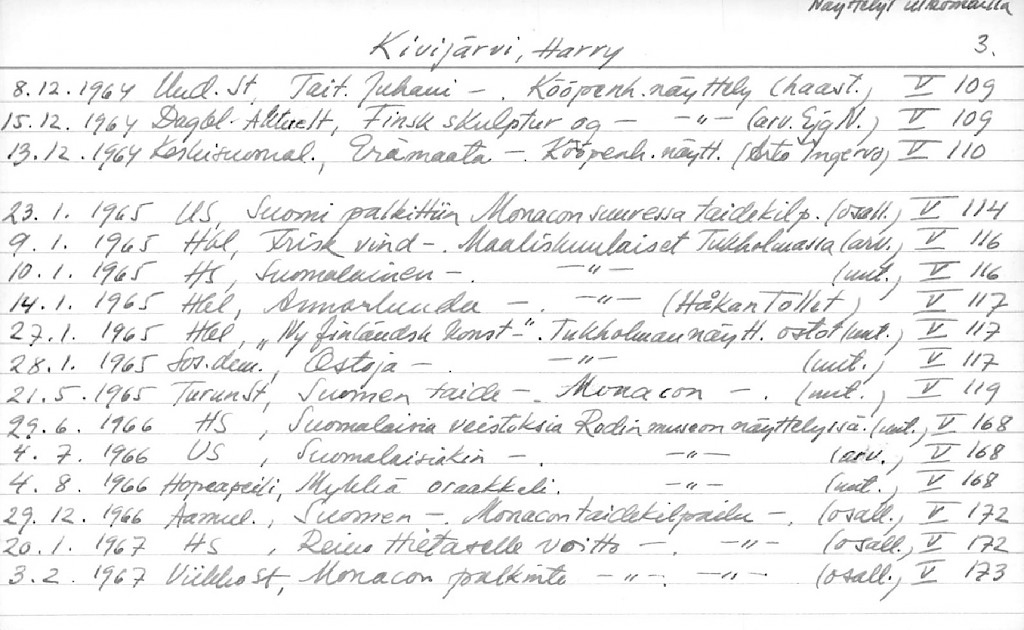 Näyttelyt ulkomailla
Kivijärvi, Harry 3.
8.12.1964 Uud. St, Tait. Juhani - . Kööpenh. näyttely (haast.) V 109
15.12.1964 Dagbl. Aktuelt, Finsk skulptur og - -"- (arv. Ejg N.) V 109
13.12.1964 Keskisuomal., Erämaata - . Kööpenh. näytt. (Arto Ingervo) V 110
23.1.1965 US, Suomi palkittiin Monacon suuressa taidekilp. (osall.) V 114
9.1.1965 Hbl, Frisk vind - . Maaliskuulaiset Tukholmassa (arv.) V 116
10.1.1965 HS, Suomalainen - . -"- (uut.) V 116
14.1.1965 Hbl, Annorlunda - -"- (Håkan Tollet) V 117
27.1.1965 Hbl, "Ny finländsk konst-". Tukholman näytt. ostot (uut.) V 117
28.1.1965 Sos.dem., Ostoja - . -"- (uut.) V 117
21.5.1965 Turun St, Suomen taide - . Monacon - . (uut.) V 119
29.6.1966 HS, Suomalaisia veistoksia Rodin museon näyttelyssä. (uut.) V 168
4.7.1966 US, Suomalaisiakin - . -"- (arv.) V 168
4.8.1966 Hopeapeili, Mykkiä oraakkeli. -"- (uut.) V 168
29.12.1966 Aamul., Suomen - . Monacon taidekilpailu - . (osall.) V 172
20.1.1967 HS, Reino Hietaselle voitto - . -"- (osall.) V 172
3.2.1967 Viikko St, Monacon palkinto -"-. -"- (osall.) V 173